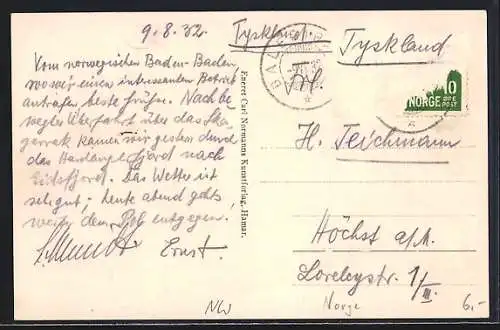 9.8.32
Tyskland.
Vom norwegischen Baden-Baden,
wo wir einen interessanten Betrieb
antrafen beste Grüße. Nach be-
wegter Überfahrt über das Ska-
gerrak kamen wir gestern durch
das Hardangerfjord nach
Eidfjord. Das Wetter ist
sehr gut; heute abend gehts
weiter dem Pol entgegen.
Ernst.
NW
Eneret Carl Normanns Kunstforlag, Hamar.
BAL
Tyskland
NORGE 10
ØRE
POST
H. Teichmann
Höchst a/M.
Loreleystr. 1/III.
Norge
6,-